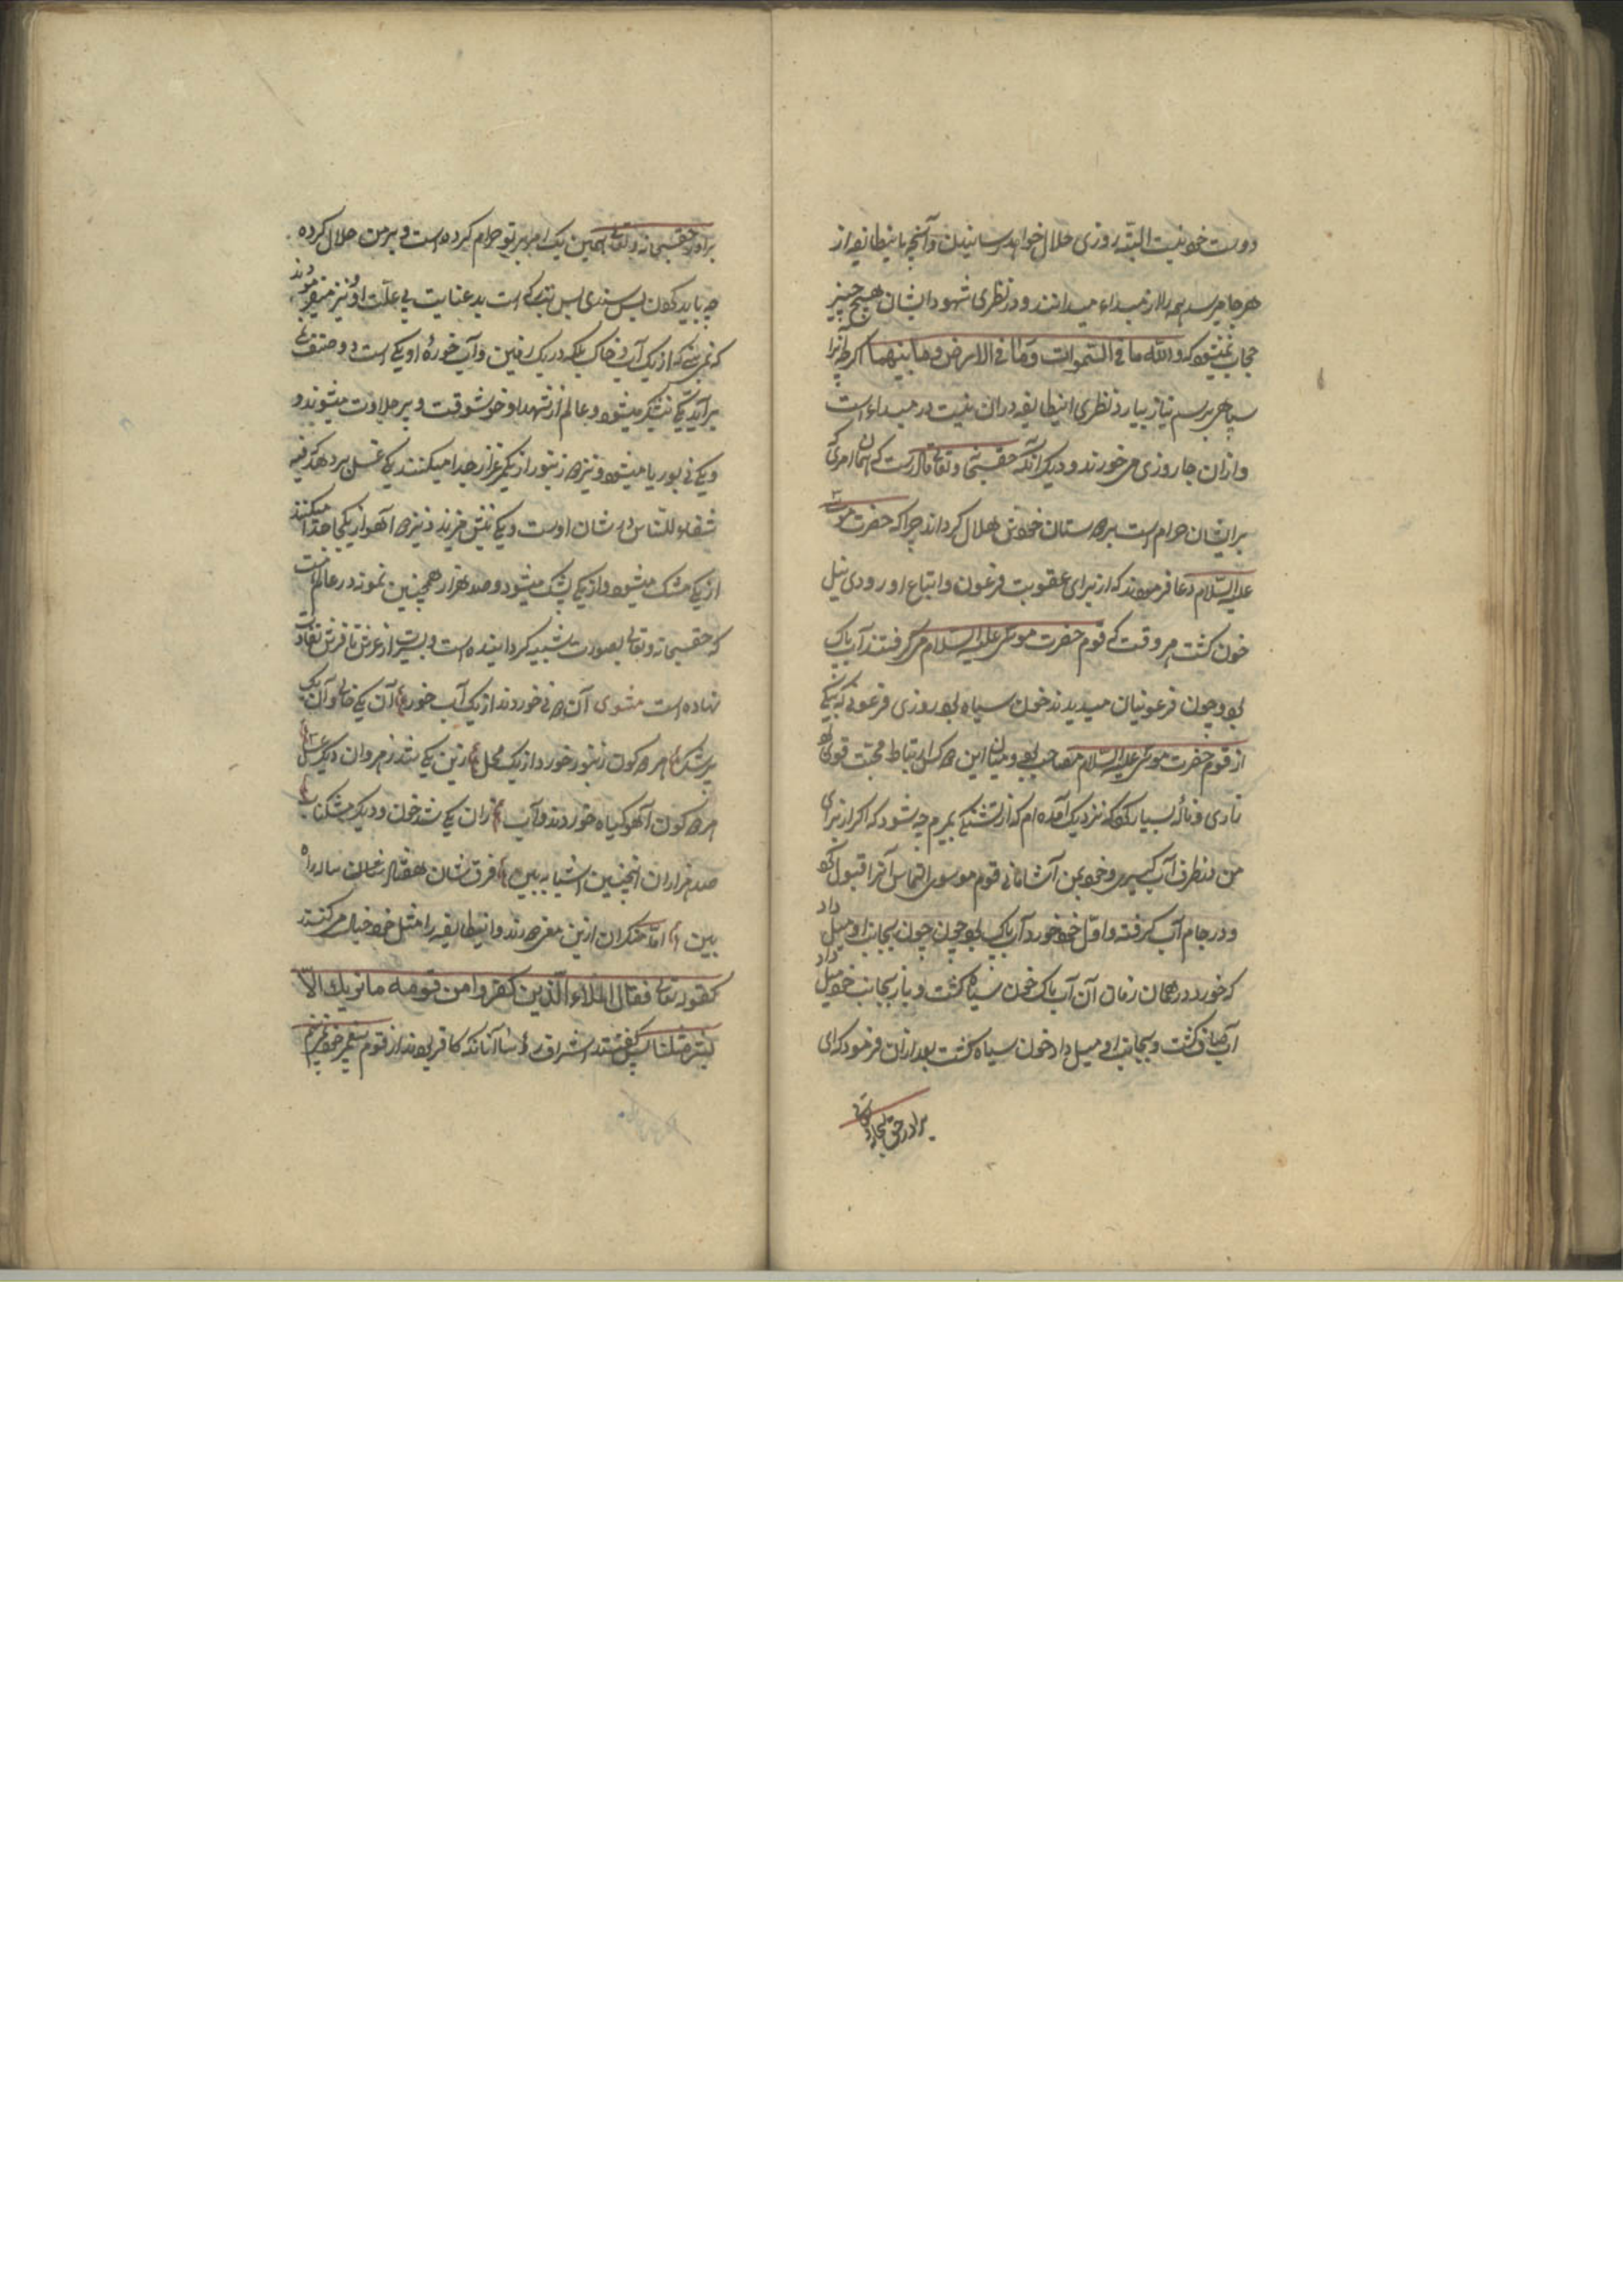 دوست خود نیست البته روزی حلال خواهد رسانیدن و آنچه باینطایفه از
هر جا میرسد همه را از مبداء میدانند و در نظری شهود ایشان هیچ چیز
حجاب نمیشود که ولله ما فی السموات وما فی الارض وما بینهما اکرچه آنرا
بر سم نیاز بیارد نظری اینطایفه دران نیست در مبداء است
و ازان جا روزی می خورند و دیکر آنکه حقسبحانه و تعالی قادرست که همان امری که
بر ایشان حرام است بر دوستان خودش حلال کرداند چرا که حضرت موسی
علیه السلام دعا فرمودند که از برای عقوبت فرعون و اتباع او رودی نیل
خون کشت هر وقت که قوم حضرت موسی علیه السلام می کرفتند آب پاک
بود و چون فرعونیان میدیدند خون سیاه بود روزی فرعونی که بیکی
از قوم حضرت موسی علیه السلام مصاحب بود و میان این دو کس ارتباط محبت قوی بود
زاری و ناله بسیار کرد که نزدیک آمده ام که از تشنکی بمیرم چه شود که اکر از برای
من ظرف آب کیری و خود بمن آشامانی قوم موسی التماس آنرا قبول کرد
و در جام آب کرفته و اول خود خورد آب پاک بود چون بجانب او میل داد
که خورد در همان زمان آن آب پاک خون سیاه کشت و باز بجانب خود میل داد
آب صاف کشت و بجانب او میل داد خون سیاه کشت بعد ازان فرمود که ای
برادر حق سبحانه وتعالی
برادر حقسبحانه و تعالی همین یک امر بر تو حرام کرده است و بر من حلال کرده
چه باید کون بس بد عنایت بی علت او و نیز میفرمودند
که نمی بینی که از یک آب و خاک بلکه در یک زمین و آب خورهٔ او یکی است دو صنف نی
بر آید یکی نیشکر میشود و عالم از شهد او خوشوقت و پر حلاوت میشوند و
و یکی نی بوریا میشود و نیز دو زنبور از یک مرغزار جدا میکنند یکی عسل بر دهد که فیه
شفاء للناس در شان اوست و یکی نیش میزند و نیز دو آهو از یکجا غذا میکنند
از یکی مشک میشود و از یکی پشک میشود و صد هزار همچنین نمونه در عالم است
که حقسبحانه و تعالی بصورت شبیه کردانیده است و بسیار از عرش تا فرش تفاوت
نهاده است مثنوی آن دو نی خوردند از یک آب خور آن یکی خالی و آن یک
پر شکر هر دو کون زنبور خورد از یک محل زین یکی شد زهر و ان دیکر عسل
هر دو کون آهو کیاه خوردند و آب زان یکی شد خون و دیکر مشکناب
صد هزاران اینچنین اشباه بین فرق شان هفتاد ساله راه
بین اما منکران ازین معنی دورند و اینطایفه را مثل خود خیال می کنند
کقوله تعالی فقال الملاء الذین کفروا من قومه ما نریك الا
بشر مثلنا پس کفتند اشراف رؤسا آنانکه کافر بودند از قوم پیغمبر خود